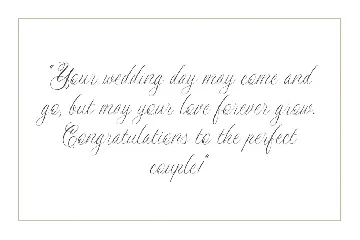 "Your wedding day may come and
go, but may your love forever grow.
Congratulations to the perfect
couple!"